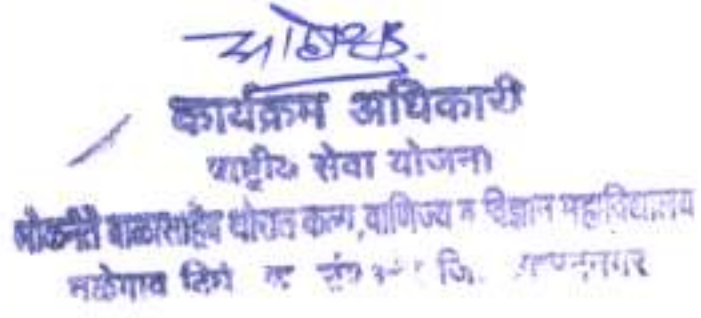 कार्यक्रम अधिकारी
राष्ट्रीय सेवा योजना
लोकनेते बाळासाहेब थोरात कला, वाणिज्य व विज्ञान महाविद्यालय
तळेगाव दिघे जि.